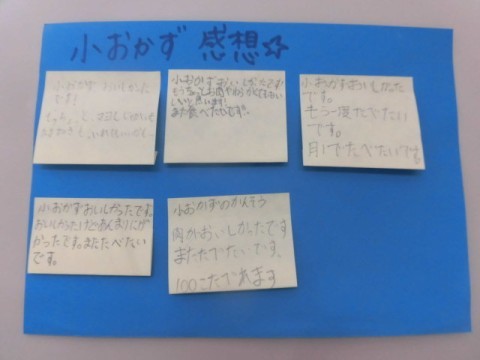 小おかず 感想☆
小おかずおいしかった
です!
ちょっと
小おかずおいしかったです!
もうちょっとお肉やわらかくてもおい
しいと思います!
また食べたいです。
小おかずおいしかった
です。
もう一度たべたい
です。
月1でたべたいです。
小おかずおいしかったです。
おいしかったけどあんまりにが
かったです。またたべたい
です。
小おかずのかんそう
肉がおいしかったです
またたべたいです、
100こたべれます